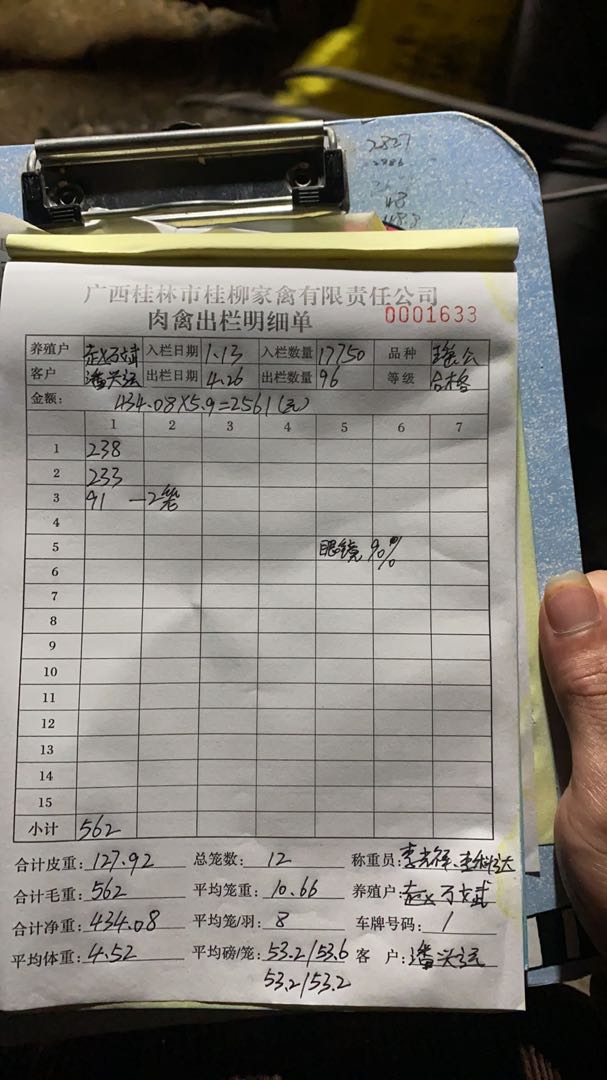 2827
广西桂林市桂柳家禽有限责任公司
肉禽出栏明细单 0001633
养殖户 入栏日期 1.13 入栏数量 17750 品种
客户 出栏日期 4.26 出栏数量 96 等级 合格
金额: 434.08×5.9=2561(元)
1 2 3 4 5 6 7
1 238
2 233
3 91 —2笼
4
5 眼镜 90%
6
7
8
9
10
11
12
13
14
15
小计 562
合计皮重: 127.92 总笼数: 12 称重员:
合计毛重: 562 平均笼重: 10.66 养殖户:
合计净重: 434.08 平均笼/羽: 8 车牌号码: 1
平均体重: 4.52 平均磅/笼: 53.2/53.6 客 户:
53.2/53.2